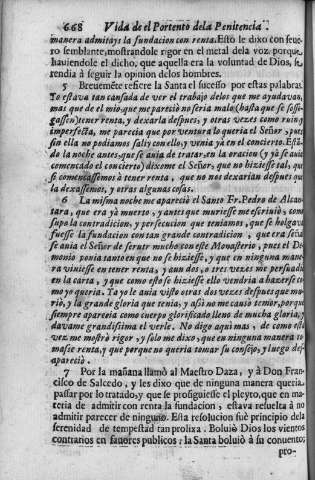 668 Vida de el Portento dela Penitencia
manera admitays la fundacion con renta. Esto le dixo con seue-
ro semblante, mostrandole rigor en el metal dela voz, porque
hauiendole el dicho, que aquella era la voluntad de Dios, se
rendia à seguir la opinion delos hombres.
5 Breuemēte refiere la Santa el sucesso por estas palabras.
Yo estava tan cansada de ver el trabajo delos que me ayudavan,
mas que el de mio, que me pareciò no seria malo (hasta que se sose-
gassen) tener renta, y dexarla despues; y otras vezes como ruin y
imperfeta, me parecia que por ventura lo queria el Señor, pues
sin ella no podiamos salir con ello, y venia yà en el concierto. Está-
do la noche antes que se auia de tratar en la oracion (y yà se auia
comencado el concierto) dixome el Señor, que no biziesse tal, que
si començassemos à tener renta, que no nos dexarian despues que
la dexassemos, y otras algunas cosas.
6 La misma noche me apareciò el Santo Fr. Pedro de Alcan-
tara, que era yà muerto, y antes que muriesse me escriuiò, como
supo la contradicion, y persecucion que teniamos, que se holgava
fuesse la fundacion con tan grande contradicion, que era señal
se auia el Señor de seruir mucho con este Monasterio, pues el De-
monio ponia tanto en que no se biziesse, y que en ninguna mane-
ra viniesse en tener renta, y aun dos, o tres vezes me persuadiò
en la carta, y que como esto se biziesse ello vendria à hazerse co-
mo yo queria. Ya yo le auia visto otras dos vezes despues que mu-
riò, y la grande gloria que tenia, y assi no me causò temor, porque
siempre aparecia como cuerpo glorificado lleno de mucha gloria, y
davame grandissima el verle. No digo aqui mas, de como esta
vez me mostrò rigor, y solo me dixo, que en ninguna manera to-
masse renta, y que porque no queria tomar su consejo, y luego des-
apareciò.
7 Por la mañana llamò al Maestro Daza, y à Don Fran-
cisco de Salcedo, y les dixo que de ninguna manera queria
passar por lo tratado, y que se prosiguiesse el pleyto, que en ma-
teria de admitir con renta la fundacion, estava resuelta à no
admitir parecer de ninguno. Esta resolucion fuè principio dela
serenidad de tempestad tan prolixa. Boluiò Dios los vientos
contrarios en fauores publicos: la Santa boluiò à su conuento;
pro-